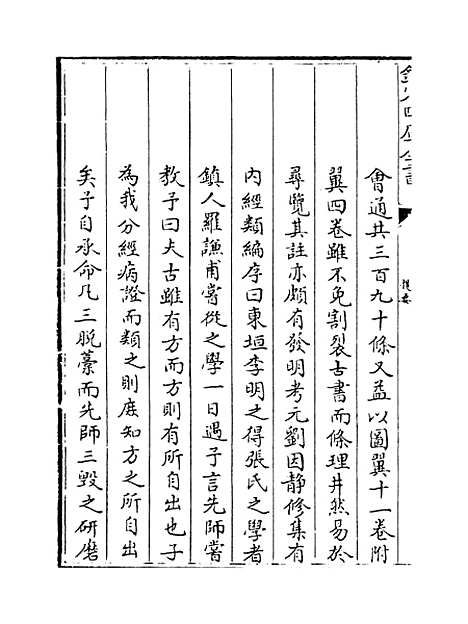 欽定四庫全書
提要
會通共三百九十條又益以圖翼十一卷附
翼四卷雖不免割裂古書而條理井然易於
尋覽其註亦頗有發明考元劉因靜修集有
內經類編序曰東垣李明之得張氏之學者
鎮人羅謙甫嘗從之學一日遇予言先師嘗
教予曰夫古雖有方而方則有所自出也子
為我分經病證而類之則庶知方之所自出
矣予自承命凡三脫藳而先師三毀之研磨